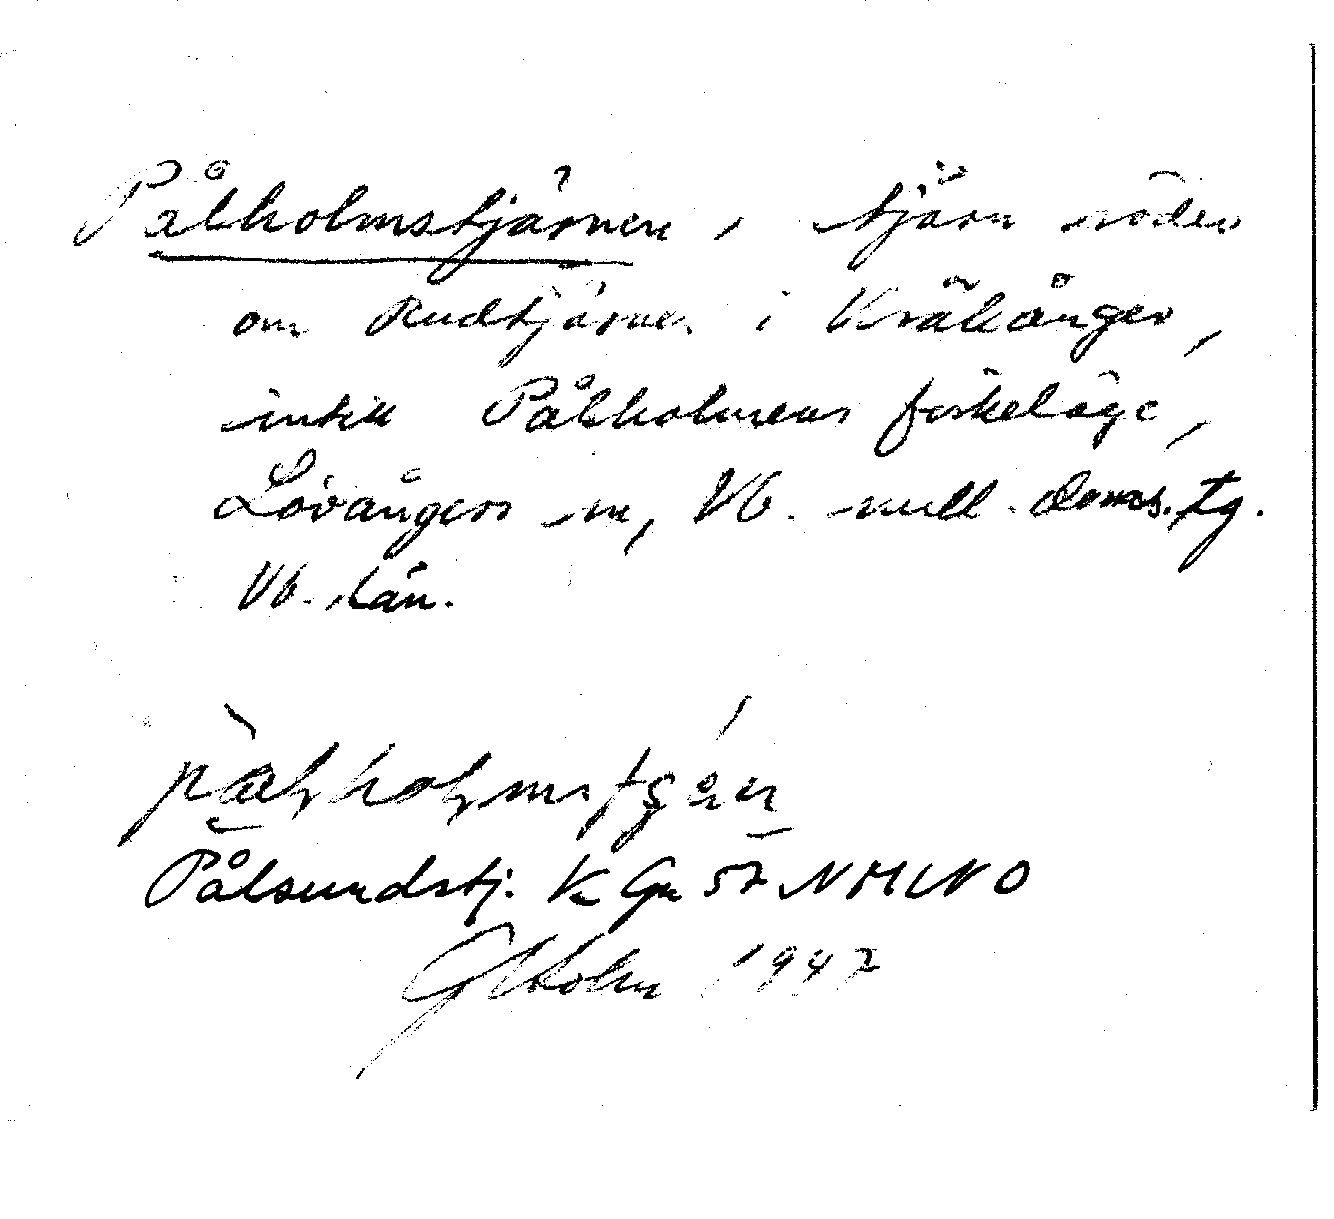 Pålholmstjärnen, tjärn söder
om Rudtjärnen i Kräkånger,
intill Pålholmens fiskeläge,
Lövångers sn, Vb. mell. doms. tg.
Vb. län.
Pålsundstj. K Gn 57 NMLNO
Holm 1947